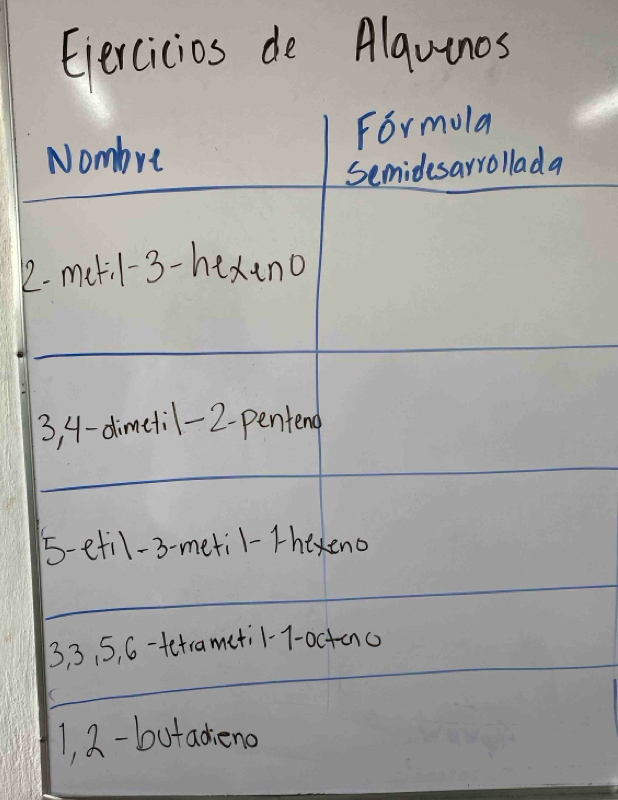 Ejercicios de Alquenos
Nombre
Fórmula
semidesarrollada
2-metil-3-hexeno
3,4-dimetil-2-penteno
5-etil-3-metil-1-hexeno
3,3,5,6-tetrametil-1-octeno
1,2-butadieno